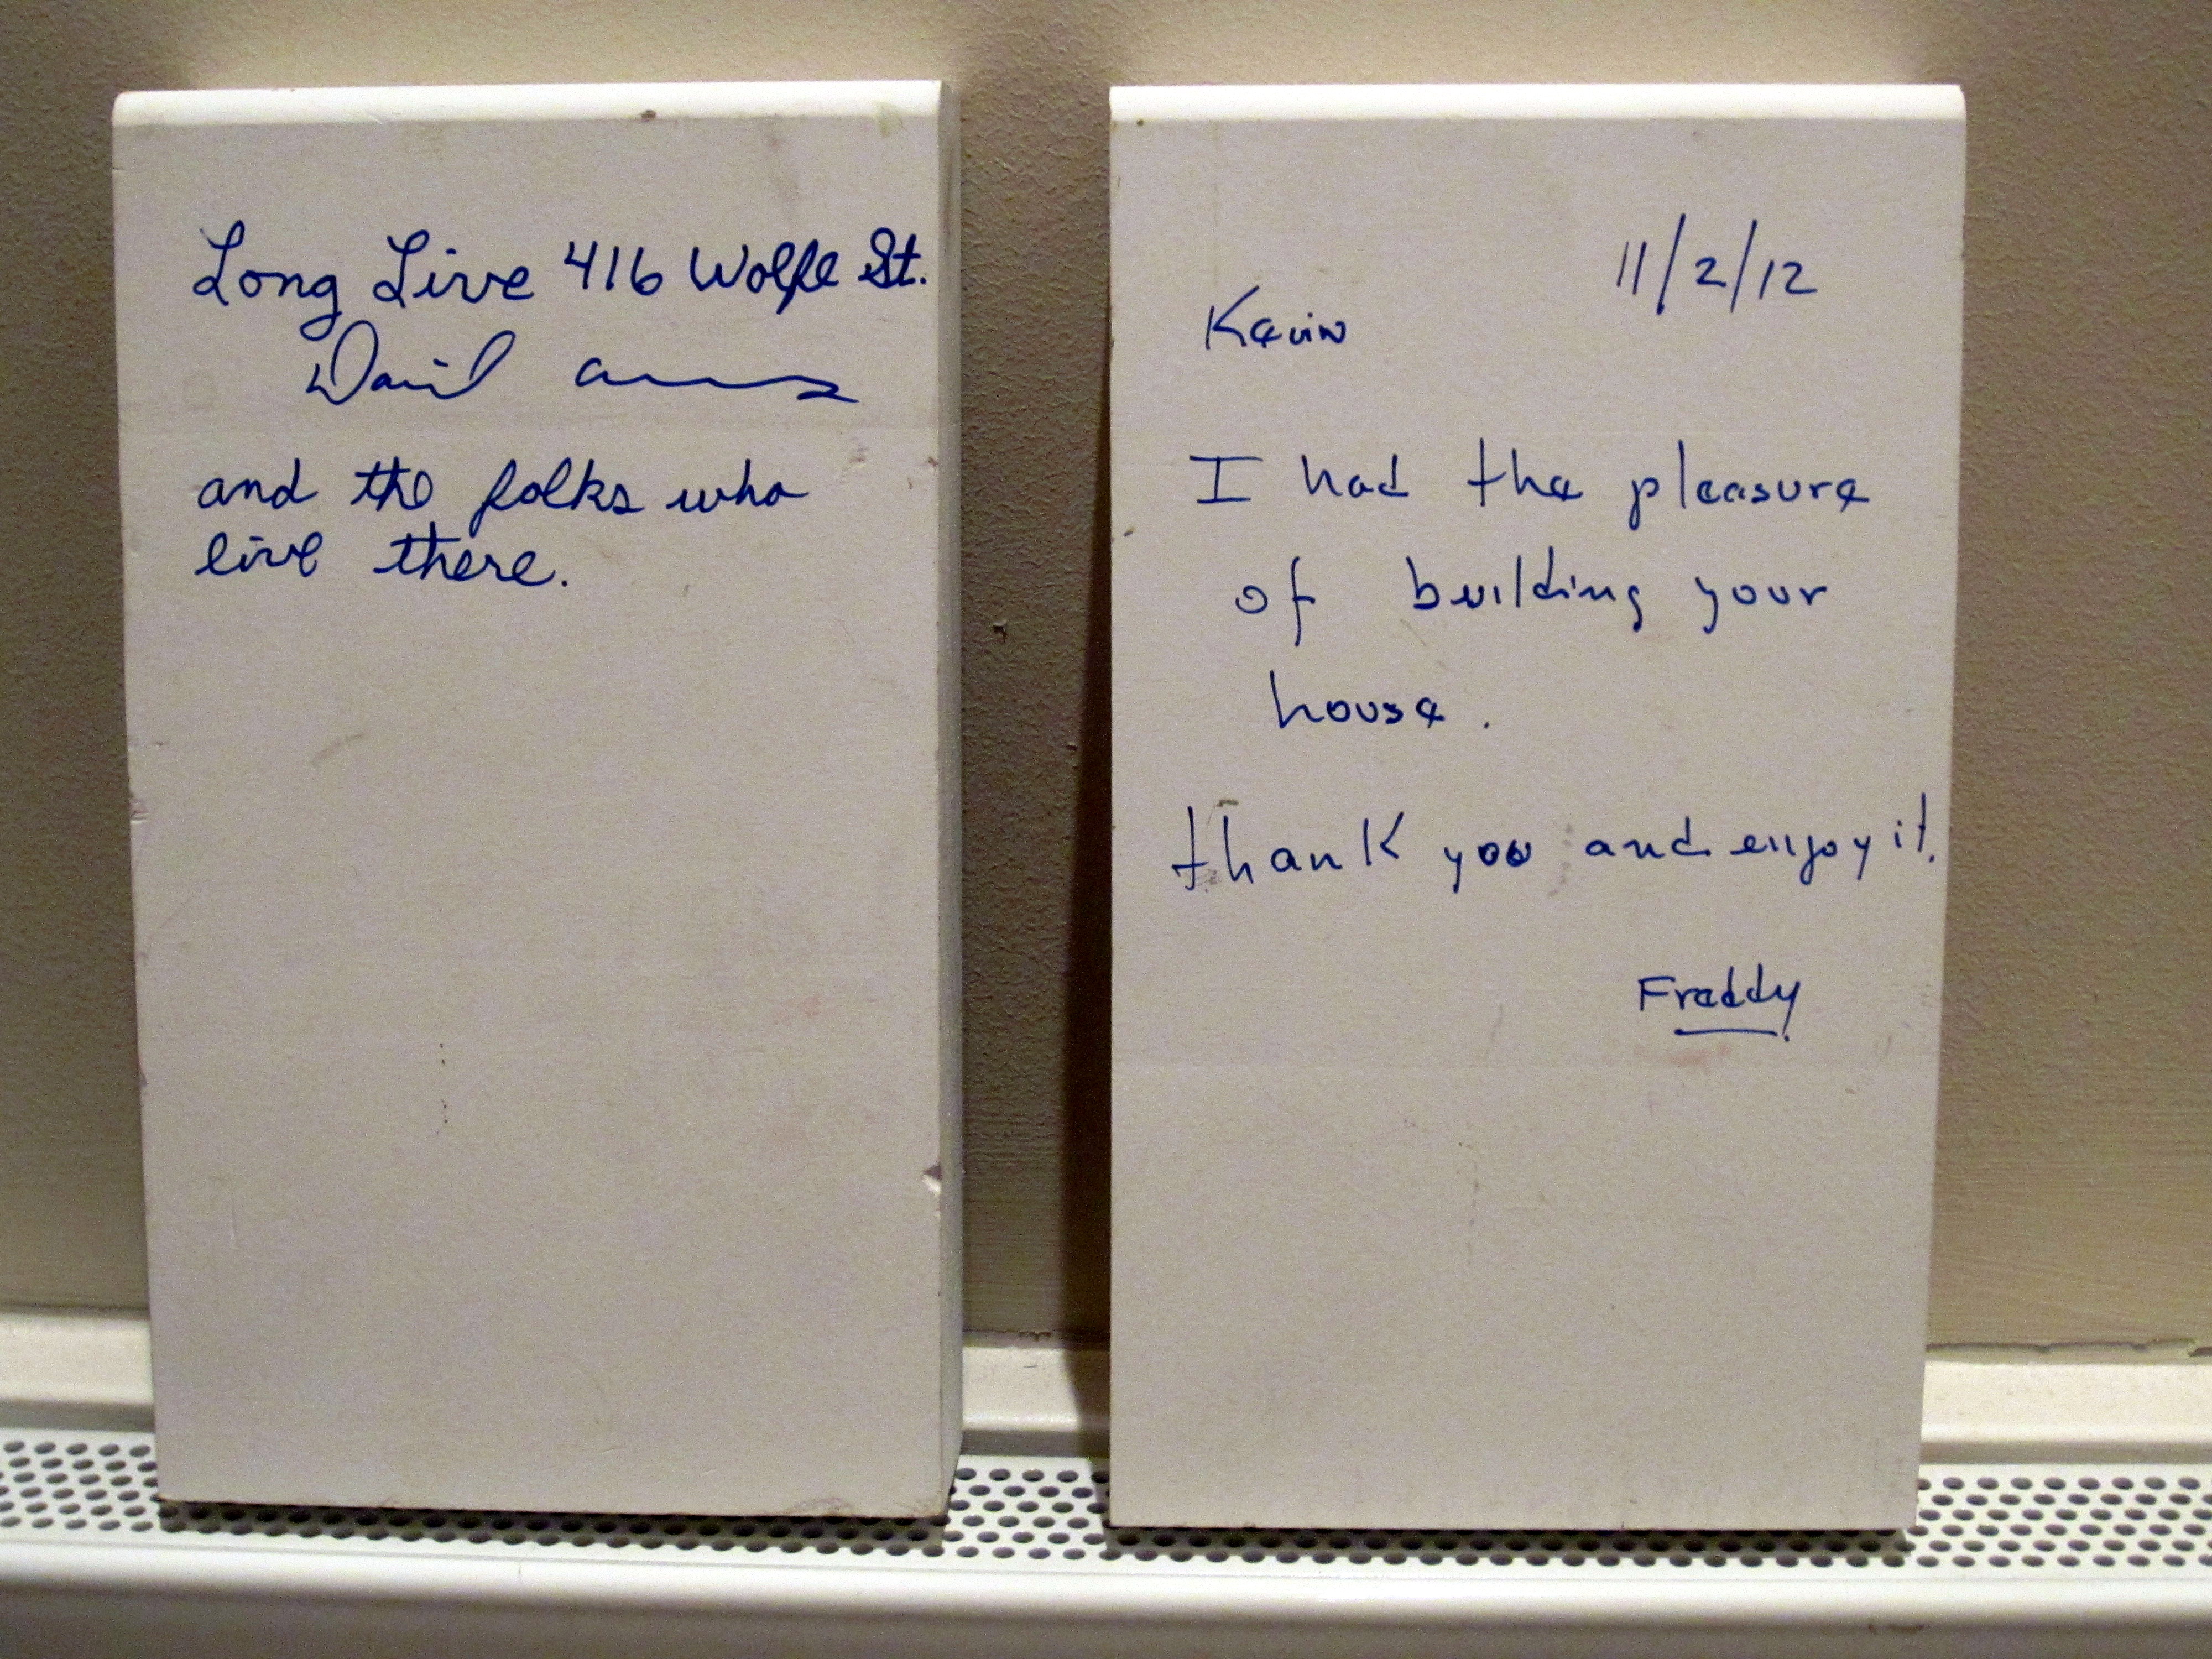 Long Live 416 Wolfe St.
David
and the folks who
live there.
11/2/12
Kevin
I had the pleasure
of building your
house.
thank you and enjoy it.
Freddy